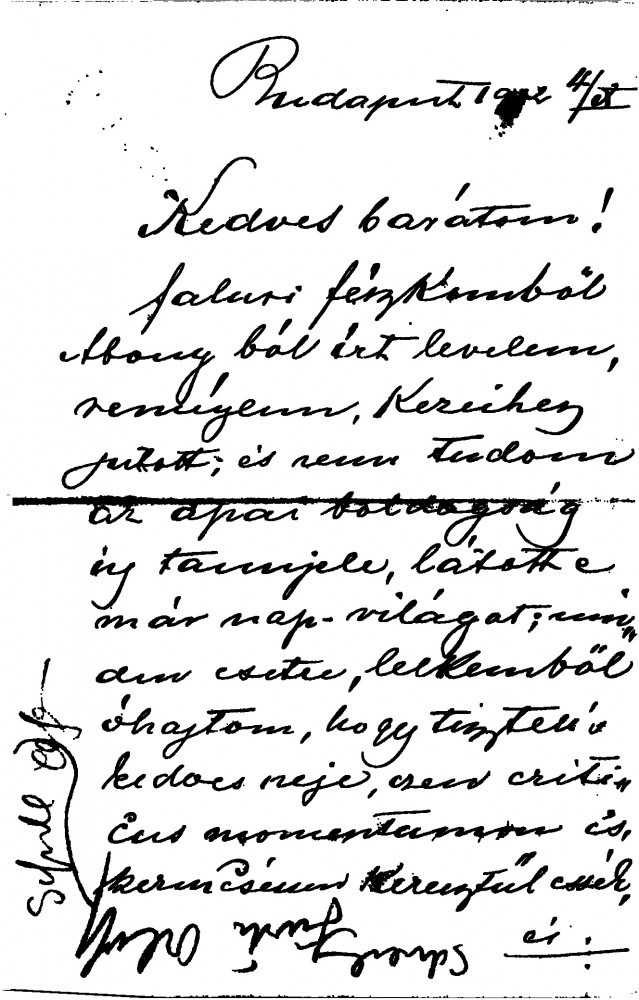 Budapest 1902 4/IX
Kedves barátom!
falusi fészkemből
Abony ból írt levelem,
reményem, Kezeihez
jutott; és nem tudom
az apai boldogság
új tanujele, látott e
már nap-világot; min„
den esetre, lelkemből
óhajtom, hogy tisztelt
kedves neje, ezen criti„
cus momentumon is,
szerencsésen Keresztül essék,
és :